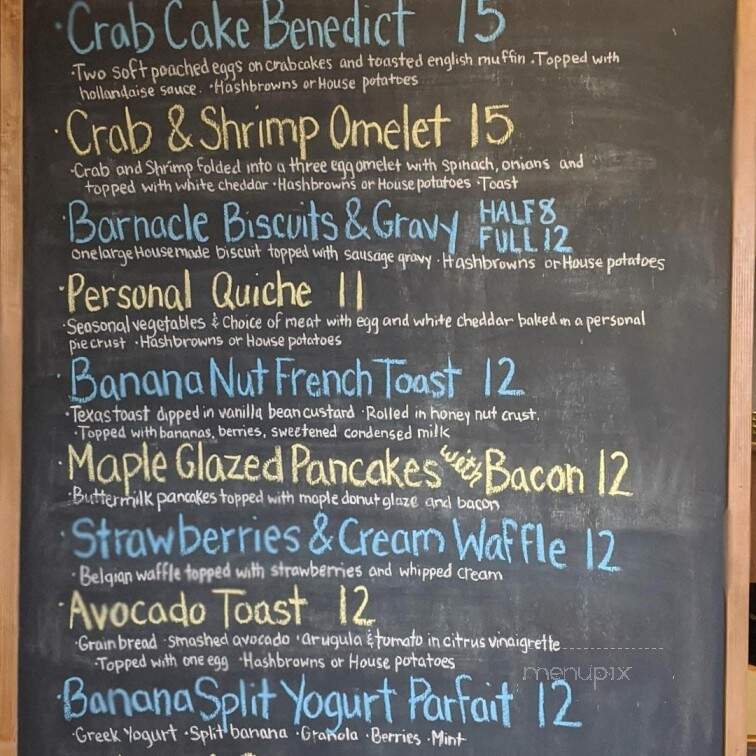 ·Crab Cake Benedict 15
·Two soft poached eggs on crabcakes and toasted english muffin ·Topped with
hollandaise sauce. ·Hashbrowns or House potatoes
·Crab & Shrimp Omelet 15
·Crab and Shrimp folded into a three egg omelet with spinach, onions and
topped with white cheddar ·Hashbrowns or House potatoes ·Toast
·Barnacle Biscuits & Gravy HALF 8
FULL 12
one large Housemade biscuit topped with sausage gravy ·Hashbrowns or House potatoes
·Personal Quiche 11
·Seasonal vegetables & Choice of meat with egg and white cheddar baked in a personal
pie crust ·Hashbrowns or House potatoes
·Banana Nut French Toast 12
·Texas toast dipped in vanilla bean custard ·Rolled in honey nut crust.
·Topped with bananas, berries, sweetened condensed milk
·Maple Glazed Pancakes with Bacon 12
·Buttermilk pancakes topped with maple donut glaze and bacon
·Strawberries & Cream Waffle 12
·Belgian waffle topped with strawberries and whipped cream
·Avocado Toast 12
·Grain bread ·smashed avocado ·arugula & tomato in citrus vinaigrette
·Topped with one egg ·Hashbrowns or House potatoes
menupix
·Banana Split Yogurt Parfait 12
·Greek Yogurt ·Split banana ·Granola ·Berries ·Mint